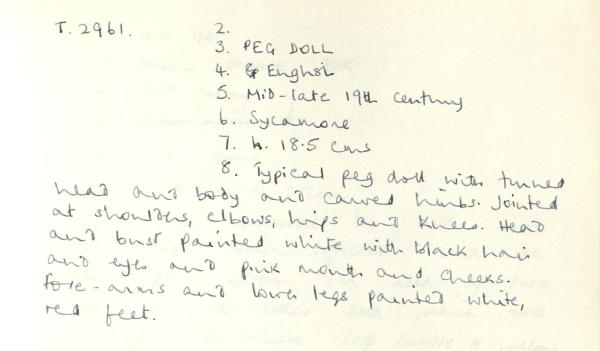 T. 2961. 2.
3. PEG DOLL
4. English
5. Mid-late 19th century
6. Sycamore
7. h. 18.5 cms
8. Typical peg doll with turned
head and body and carved limbs. Jointed
at shoulders, elbows, hips and knees. Head
and bust painted white with black hair
and eyes and pink mouth and cheeks.
Fore-arms and lower legs painted white,
red feet.